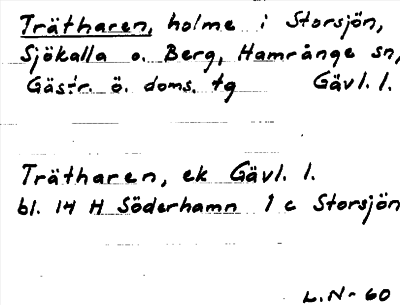 Trätharen, holme i Storsjön,
Sjökalla o. Berg, Hamrånge sn,
Gästr. ö. doms. tg Gävl. l.
Trätharen, ek Gävl. l.
bl. 14 H Söderhamn 1 c Storsjön
L.N-60